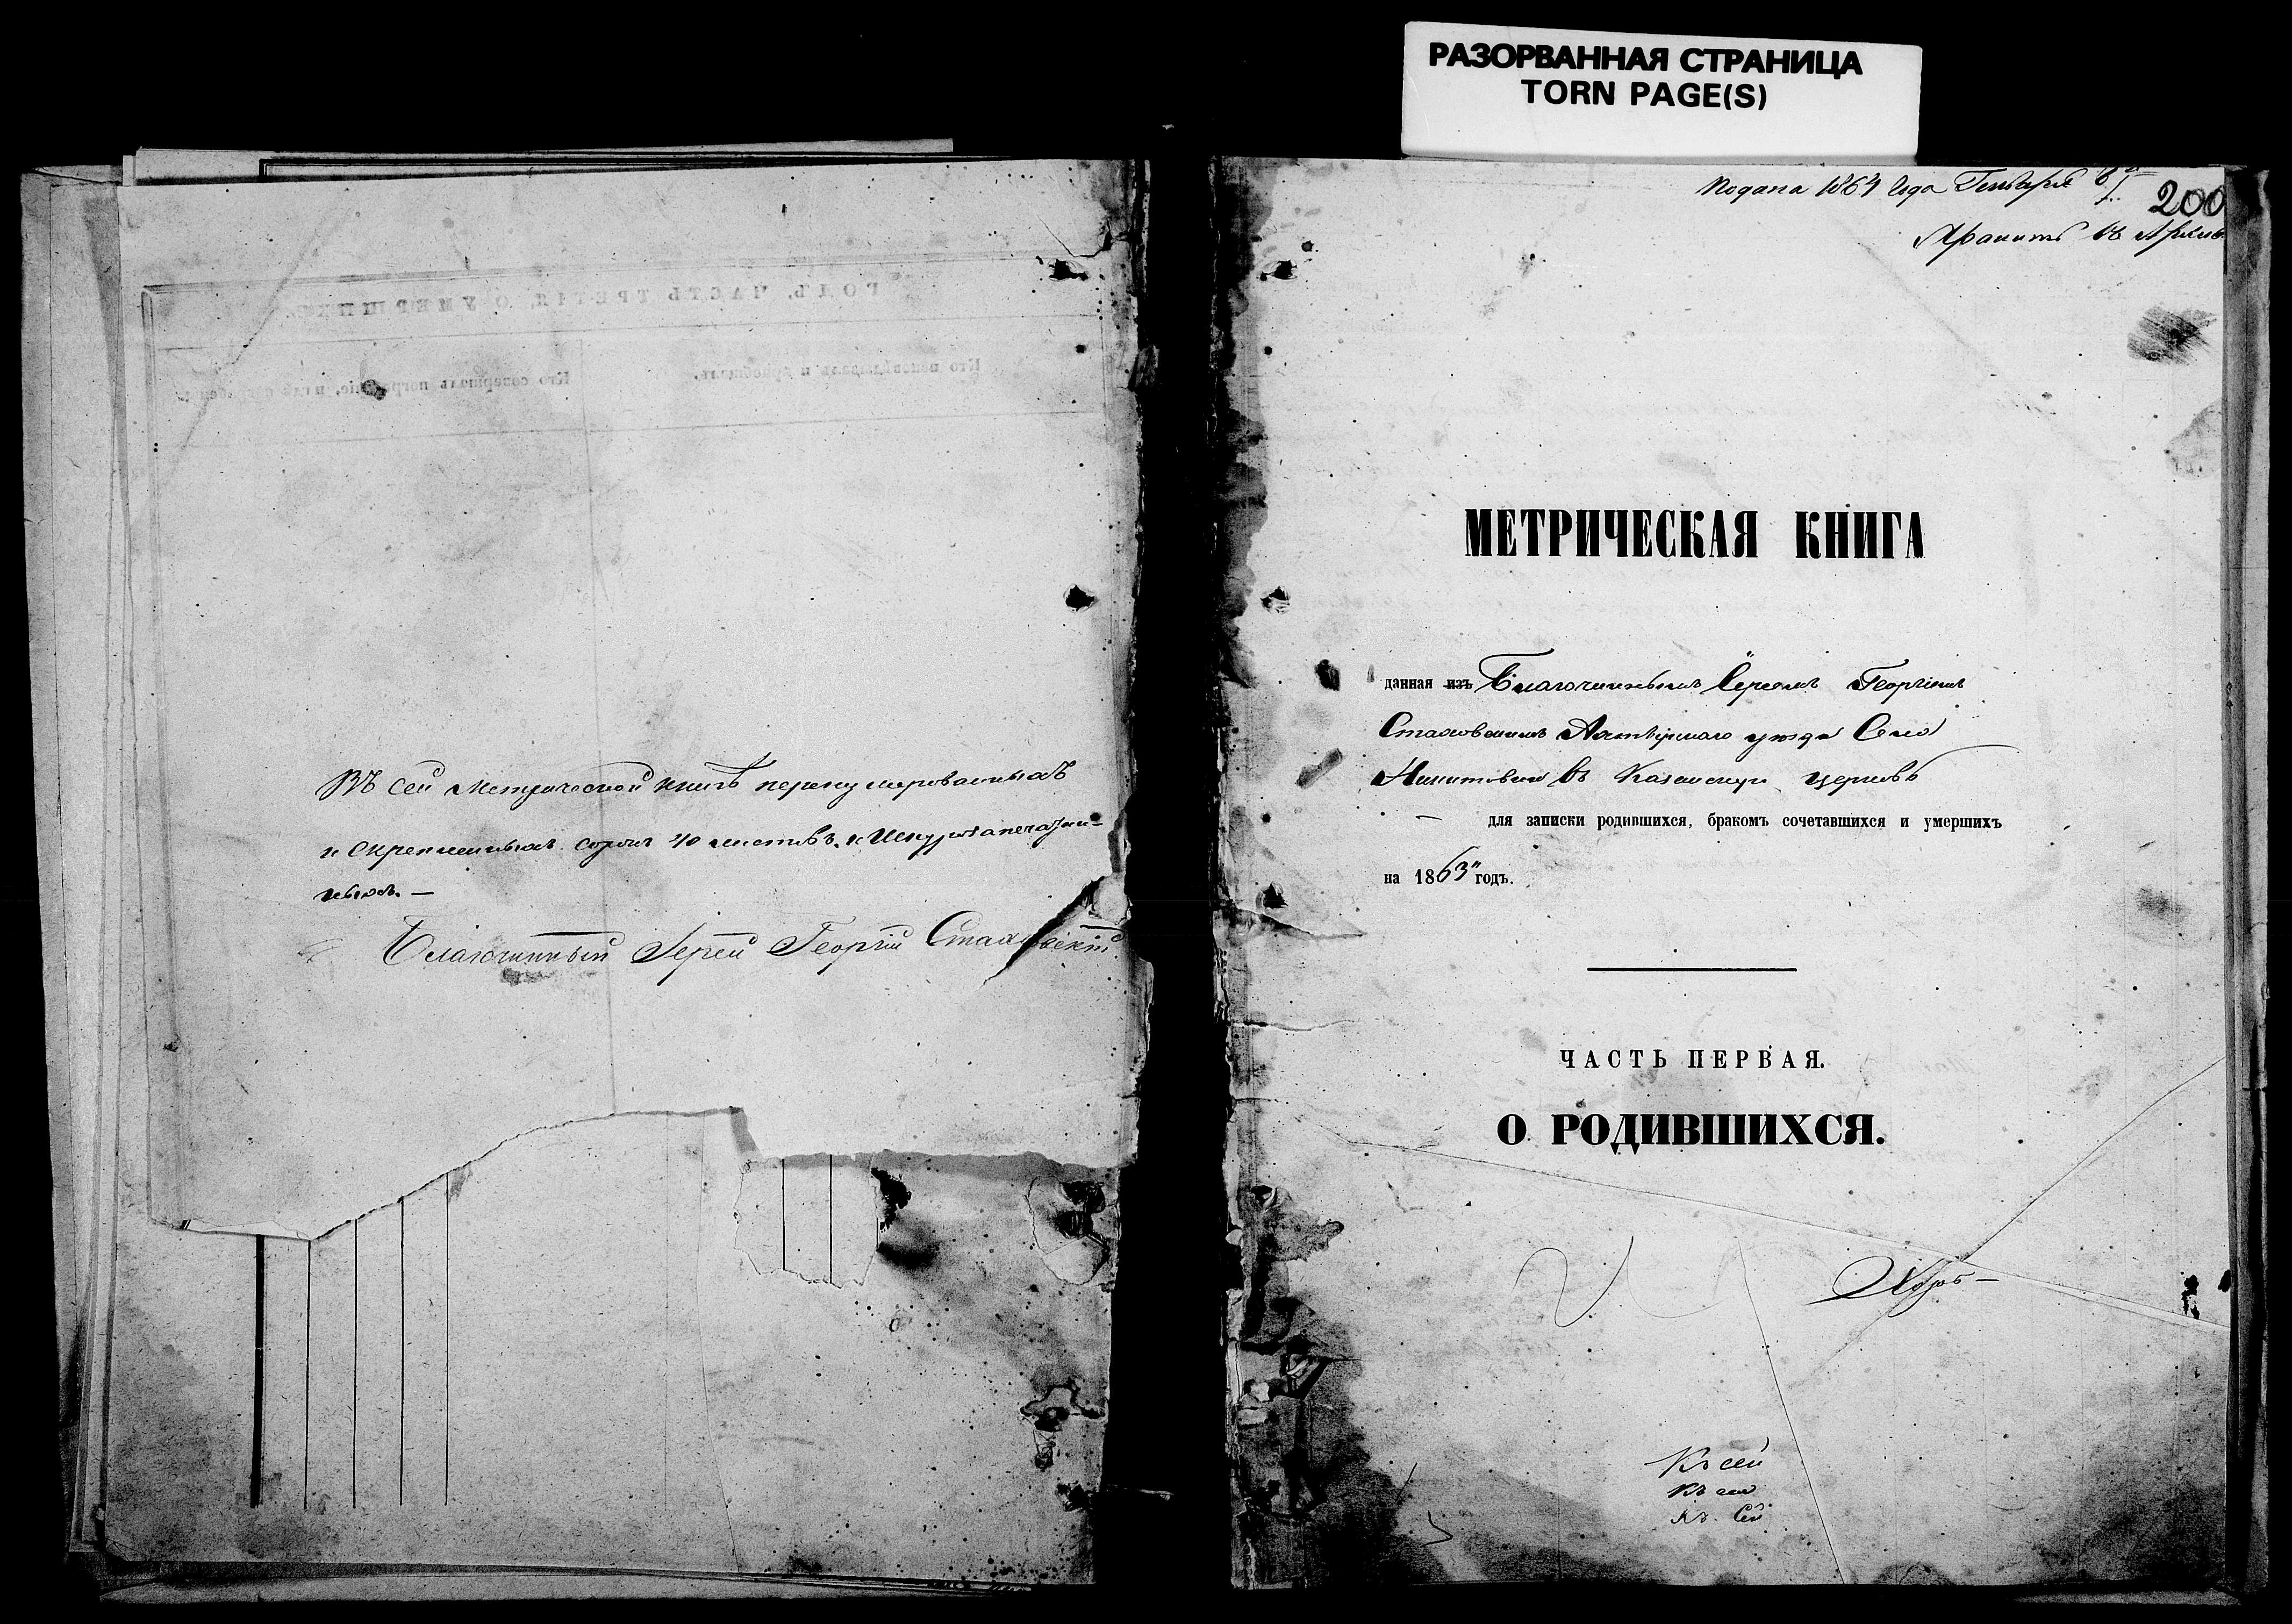 РАЗОРВАННАЯ СТРАНИЦА
TORN PAGE(S)
Подана 1864 года Генваря
200
Хранить въ Архивѣ
ГОДЪ, ЧАСТЬ ТРЕТІЯ, О УМЕРШИХЪ.
Кто исповѣдывалъ и пріобщалъ.
Кто совершалъ погребеніе, и гдѣ
Въ сей метрической книгѣ перенумерованныхъ
и скрепленныхъ сорокъ 40 листовъ. и Шнурозапечатан-
ныхъ. —
Благочинный Іерей Георгій Стаховскій
МЕТРИЧЕСКАЯ КНИГА
данная изъ Благочиннымъ Іереемъ Георгіемъ
Стаховскимъ Ахтырскаго уѣзда Села
Никитовки въ Казанскую церковь
— для записки родившихся, бракомъ сочетавшихся и умершихъ
на 1863 годъ.
ЧАСТЬ ПЕРВАЯ.
О РОДИВШИХСЯ.
Къ сей
Къ сей
Къ Сей